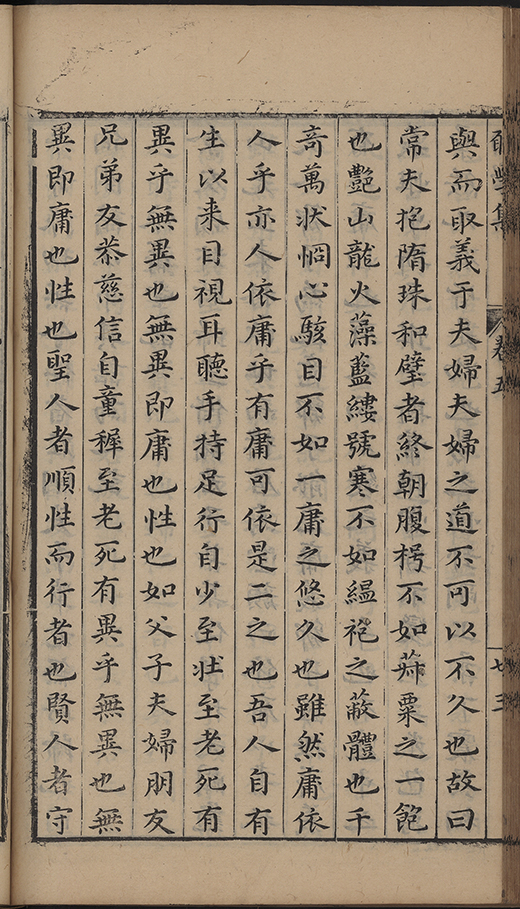 爾學集 卷五 七三
與而取義于夫婦夫婦之道不可以不久也故曰
常夫抱隋珠和璧者終朝腹枵不如菽粟之一飽
也艷山龍火藻藍縷號寒不如緼袍之蔽體也千
竒萬狀惘心駭目不如一庸之悠久也雖然庸依
人乎亦人依庸乎有庸可依是二之也吾人自有
生以来目視耳聽手持足行自少至壯至老死有
異乎無異也無異即庸也性也如父子夫婦朋友
兄弟友恭慈信自童稺至老死有異乎無異也無
異即庸也性也聖人者順性而行者也賢人者守